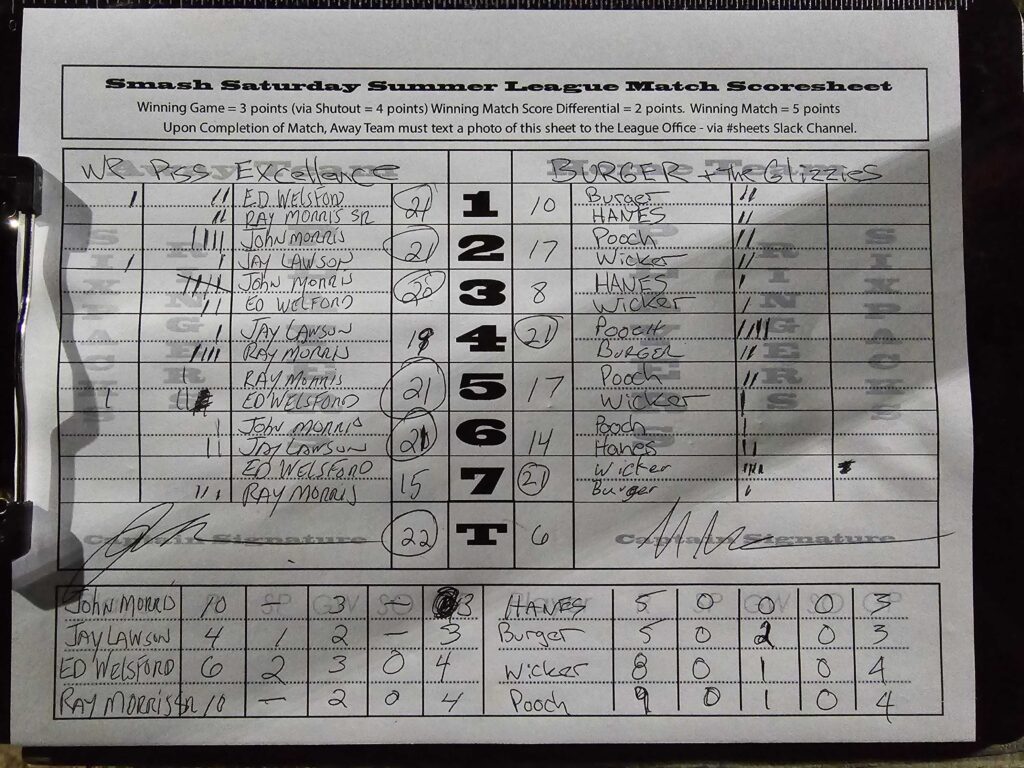 Smash Saturday Summer League Match Scoresheet
Winning Game = 3 points (via Shutout = 4 points) Winning Match Score Differential = 2 points. Winning Match = 5 points
Upon Completion of Match, Away Team must text a photo of this sheet to the League Office - via #sheets Slack Channel.
Away Team Home Team
Excellence BURGER + the Glizzies
ED WELSFORD 21 1 10 Burger
RAY MORRIS SR HANES
John MORRIS 21 2 17 Pooch
JAY LAWSON Wicker
John MORRIS 3 8 HANES
ED WELFORD Wicker
JAY LAWSON 4 21 Pooch
RAY MORRIS BURGER
RAY MORRIS 21 5 17 Pooch
ED WELSFORD Wicker
John MORRIS 21 6 14 Pooch
JAY LAWSON Hanes
ED WELSFORD 15 7 21 Wicker
RAY MORRIS Burger
SIXPACKS RINGERS PLAYERS PLAYERS RINGERS SIXPACKS
Captain Signature 22 T 6 Captain Signature
John MORRIS 10 — 3 — 3 HANES 5 0 0 0 3
JAY LAWSON 4 1 2 — 3 Burger 5 0 2 0 3
ED WELSFORD 6 2 3 0 4 Wicker 8 0 1 0 4
RAY MORRIS SR 10 — 2 0 4 Pooch 9 0 1 0 4